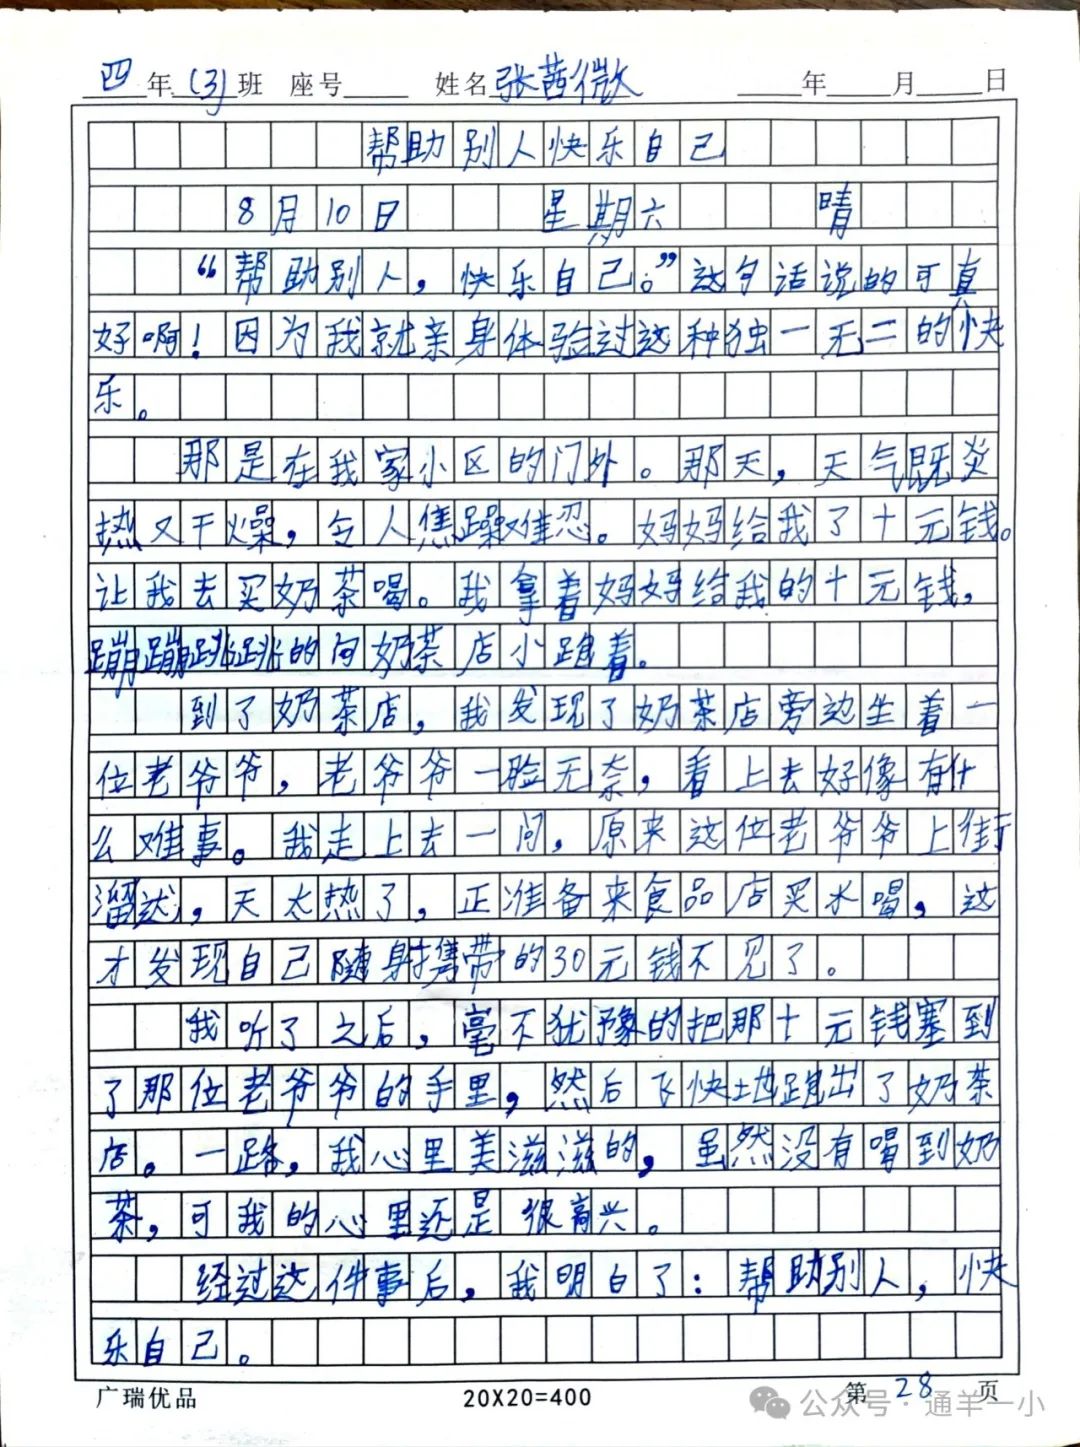 四年(3)班 座号 姓名张茜微 年 月 日
帮助别人快乐自己
8月10日 星期六 晴
“帮助别人，快乐自己。”这句话说的可真
好啊！因为我就亲身体验过这种独一无二的快
乐。
那是在我家小区的门外。那天，天气既炎
热又干燥，令人焦躁难忍。妈妈给我了十元钱。
让我去买奶茶喝。我拿着妈妈给我的十元钱，
蹦蹦跳跳的向奶茶店小跑着。
到了奶茶店，我发现了奶茶店旁边坐着一
位老爷爷，老爷爷一脸无奈，看上去好像有什
么难事。我走上去一问，原来这位老爷爷上街
溜达，天太热了，正准备来食品店买水喝，这
才发现自己随身携带的30元钱不见了。
我听了之后，毫不犹豫的把那十元钱塞到
了那位老爷爷的手里，然后飞快地跑出了奶茶
店。一路，我心里美滋滋的，虽然没有喝到奶
茶，可我的心里还是很高兴。
经过这件事后，我明白了：帮助别人，快
乐自己。
广瑞优品 20X20=400 第28页
公众号·通羊一小